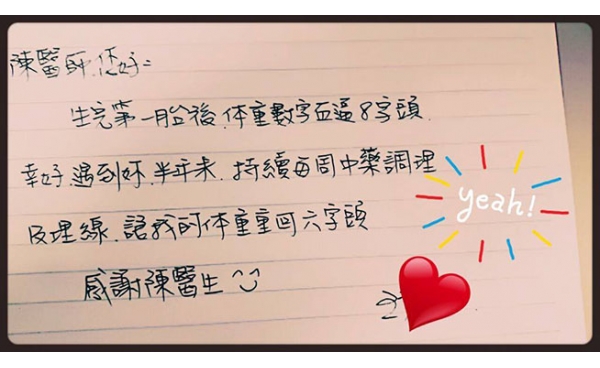 陳醫師.您好:
生完第一胎後.体重數字直逼8字頭.
幸好.遇到妳.半年來.持續每周中藥調理
及埋線.讓我的体重重回六字頭
感謝陳醫生
yeah!